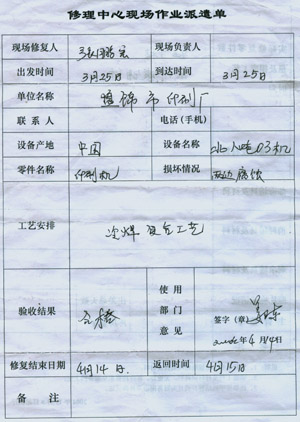 修理中心现场作业派遣单
现场修复人 现场负责人
出发时间 3月25日 到达时间 3月25日
单位名称 盘锦市印刷厂
联系人 电话(手机)
设备产地 中国 设备名称 北人 03机
零件名称 印刷机 损坏情况 腐蚀
工艺安排 冷焊 复合工艺
验收结果 合格 使用部门意见 签字(章) 年4月14日
修复结束日期 4月14日. 返回时间 4月15日
备注